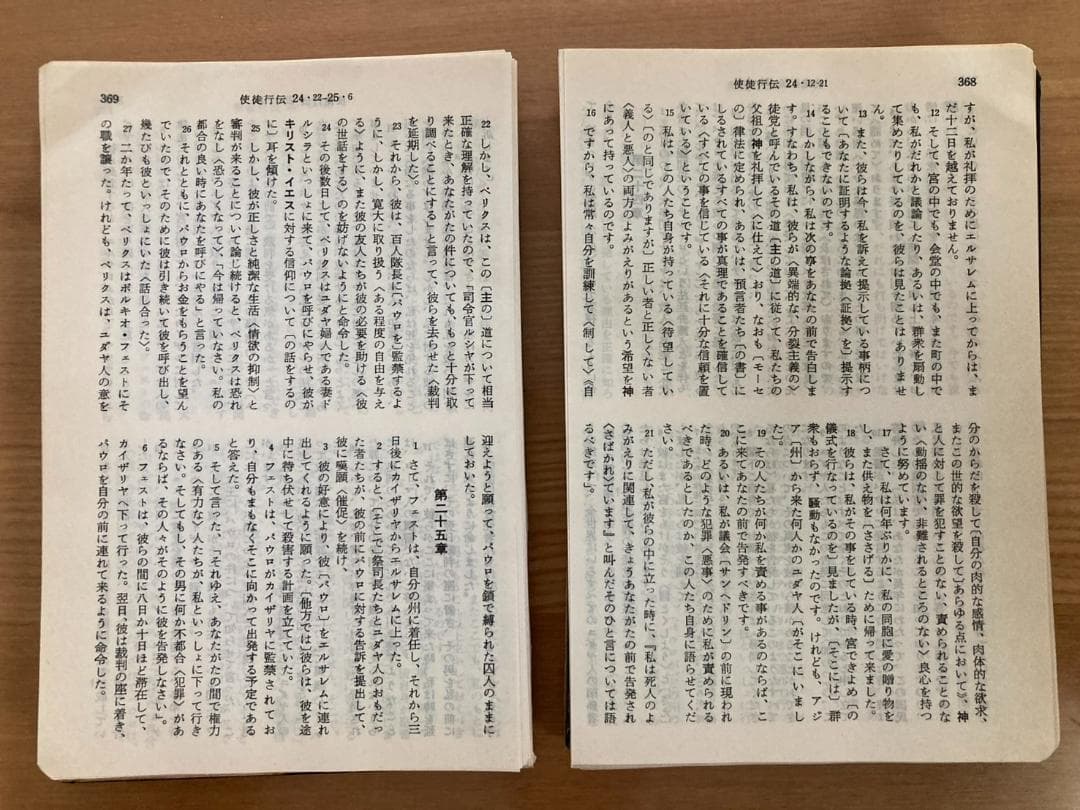 368
使徒行伝 24・12-21
すが、私が礼拝のためにエルサレムに上ってからは、ま
だ十二日を越えておりません。
12 そして、宮の中でも、会堂の中でも、また町の中で
も、私がだれかと議論したり、あるいは、群衆を扇動し
て集めたりしているのを、彼らは見たことはありませ
ん。
13 また、彼らは今、私を訴えて提示している事柄につ
いて〔あなたに証明するような論拠〈証拠〉を〕提示す
ることもできないのです。
14 しかしながら、私は次の事をあなたの前で告白しま
す。すなわち、私は、彼らが〈異端的な、分裂主義の〉
徒党と呼んでいるその道〔主の道〕に従って、私たちの
父祖の神を礼拝して〈に仕えて〉おり、なおも〔モーセ
の〕律法に定められ、あるいは、預言者たち〔の書〕に
しるされているすべての事が真理であることを確信して
いる〈すべての事を信じている〈それに十分な信頼を置
いている〉ということです。
15 私は、この人たち自身が持っている〈待望してい
る〉〔のと同じでありますが〕正しい者と正しくない者
〈義人と悪人〉の両方のよみがえりがあるという希望を神
にあって持っているのです。
16 ですから、私は常々自分を訓練して〈制して〉〈自
分のからだを殺して〔自分の肉的な感情、肉体的な欲求、
またこの世的な欲望を殺して〕あらゆる点において〉、神
と人に対して罪を犯すことのない、責められることのな
い〈動揺のない、非難されるところのない〉良心を持つ
ように努めています。
17 さて、私は何年ぶりかに、私の同胞に愛の贈り物を
し、また供え物を〔ささげる〕ために帰って来ました。
18 彼らは、私がその事をしている時、宮できよめ〔の
儀式を行なっているのを〕見ましたが、〔そこには〕群
衆もおらず、騒動もなかったのです。けれども、アジ
ア〔州〕から来た何人かのユダヤ人〔がそこにいまし
た〕。
19 その人たちが何か私を責める事があるのならば、こ
こに来てあなたの前で告発すべきです。
20 あるいは、私が議会〔サンヘドリン〕の前に現われ
た時、どのような犯罪〈悪事〉のために私が責められる
べきであるとしたのか、この人たち自身に語らせてくだ
さい。
21 ただし、私が彼らの中に立った時に、『私は死人のよ
みがえりに関連して、きょうあなたがたの前で告発され
〈さばかれ〉ています』と叫んだそのひと言については語
るべきです」。
369
使徒行伝 24・22-25・6
22 しかし、ペリクスは、この〔主の〕道について相当
正確な理解を持っていたので、「司令官ルシヤが下って
来たとき、あなたがたの件についても、もっと十分に取
り調べることにする」と言って、彼らを去らせた〈裁判
を延期した〉。
23 それから、彼は、百人隊長に〔パウロを〕監禁するよ
うに、しかし、寛大に取り扱う〈ある程度の自由を与え
る〉ように、また彼の友人たちが彼の必要を助ける〈彼
の世話をする〉のを妨げないようにと命令した。
24 その後数日して、ペリクスはユダヤ婦人である妻ド
ルシラといっしょに来て、パウロを呼びにやらせ、彼が
キリスト・イエスに対する信仰について〔の話をするの
に〕耳を傾けた。
25 しかし、彼が正しさと純潔な生活〈情欲の抑制〉と
審判が来ることについて論じ続けると、ペリクスは恐れ
をなし〈恐ろしくなって〉、「今は帰っていなさい。私の
都合の良い時にあなたを呼びにやる」と言った。
26 それとともに、パウロからお金をもらうことを望ん
でいたので、そのために彼は引き続いて彼を呼び出し、
幾たびも彼といっしょにいた〈話し合った〉。
27 二か年たって、ペリクスはポルキオ・フェストにそ
の職を譲った。けれども、ペリクスは、ユダヤ人の意を
迎えようと願って、パウロを鎖で縛られた囚人のままに
しておいた。
第二十五章
1 さて、フェストは、自分の州に着任し、それから三
日後にカイザリヤからエルサレムに上った。
2 すると、〔そこで〕祭司長たちとユダヤ人のおもだっ
た者たちが、彼の前にパウロに対する告訴を提出して、
彼に嘆願〈催促〉を続け、
3 彼の好意により、彼〔パウロ〕をエルサレムに連れ
出してくれるように願った。〔他方では〕彼らは、彼を途
中に待ち伏せして殺害する計画を立てていた。
4 フェストは、パウロがカイザリヤに監禁されてお
り、自分もまもなくそこに向かって出発する予定である
と答えた。
5 そして言った、「それゆえ、あなたがたの間で権力
のある〈有力な〉人たちが、私といっしょに下って行き
なさい。そしてもし、その男に何か不都合〈犯罪〉があ
るならば、その人々がそのように彼を告発しなさい」。
6 フェストは、彼らの間に八日か十日ほど滞在して、
カイザリヤへ下って行った。翌日、彼は裁判の座に着き、
パウロを自分の前に連れて来るように命令した。